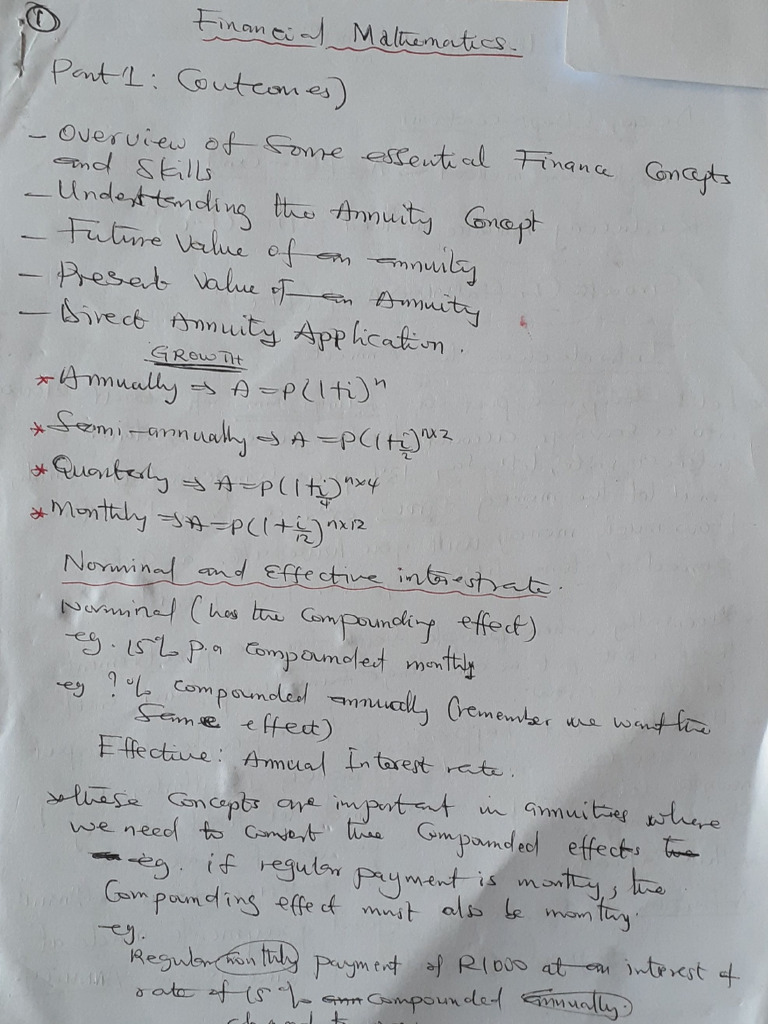 ①
Financial Mathematics.
Part 1: (outcomes)
- Overview of Some essential Finance Concepts
and Skills
- Understanding the Annuity Concept
- Future Value of an annuity
- Present Value of an Annuity
- Direct Annuity Application.
GROWTH
* Annually ⇒ A = P(1+i)^n
* Semi-annually ⇒ A = P(1+i/2)^n×2
* Quarterly ⇒ A = P(1+i/4)^n×4
* Monthly ⇒ A = P(1+i/12)^n×12
Norminal and Effective interest rate.
Norminal (has the Compounding effect)
eg. 15% p.a compounded monthly
eg ?% compounded annually (remember we want the
Same effect)
Effective: Annual Interest rate.
* these Concepts are important in annuities where
we need to convert the Compounded effects
eg. if regular payment is montly, the
Compounding effect must also be montly.
eg.
Regular monthly payment of R1000 at an interest
rate of 15% compounded annually.